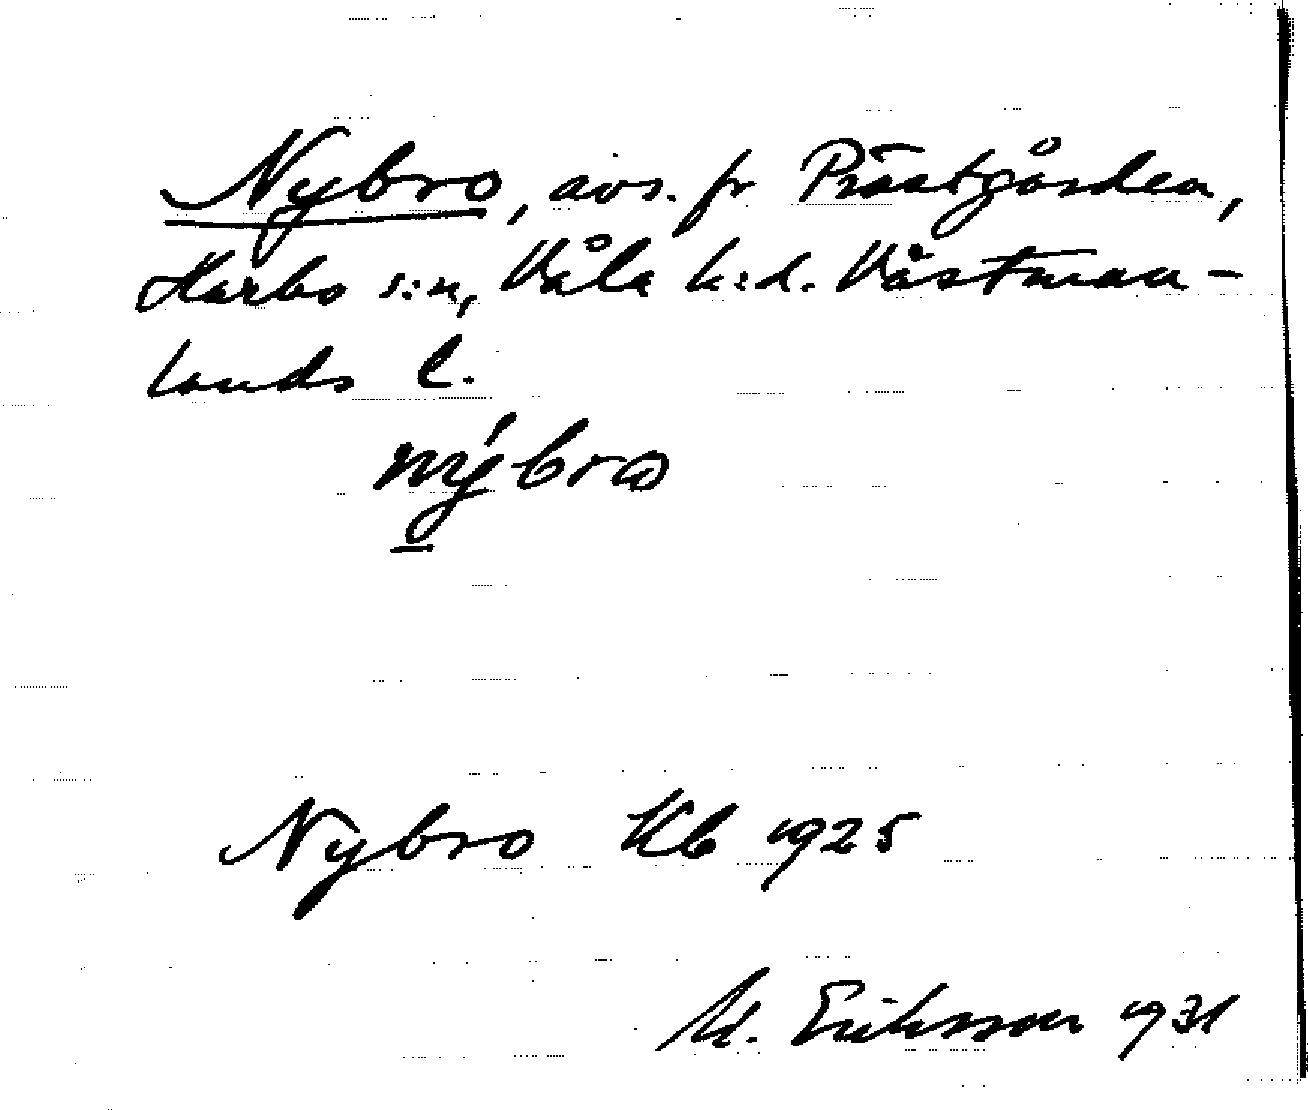 Nybro, avs. fr Prästgården,
Harbo s:n, Våla h:d. Västman-
lands l.
nýbro
Nybro Kb 1925
M. Eriksson 1931